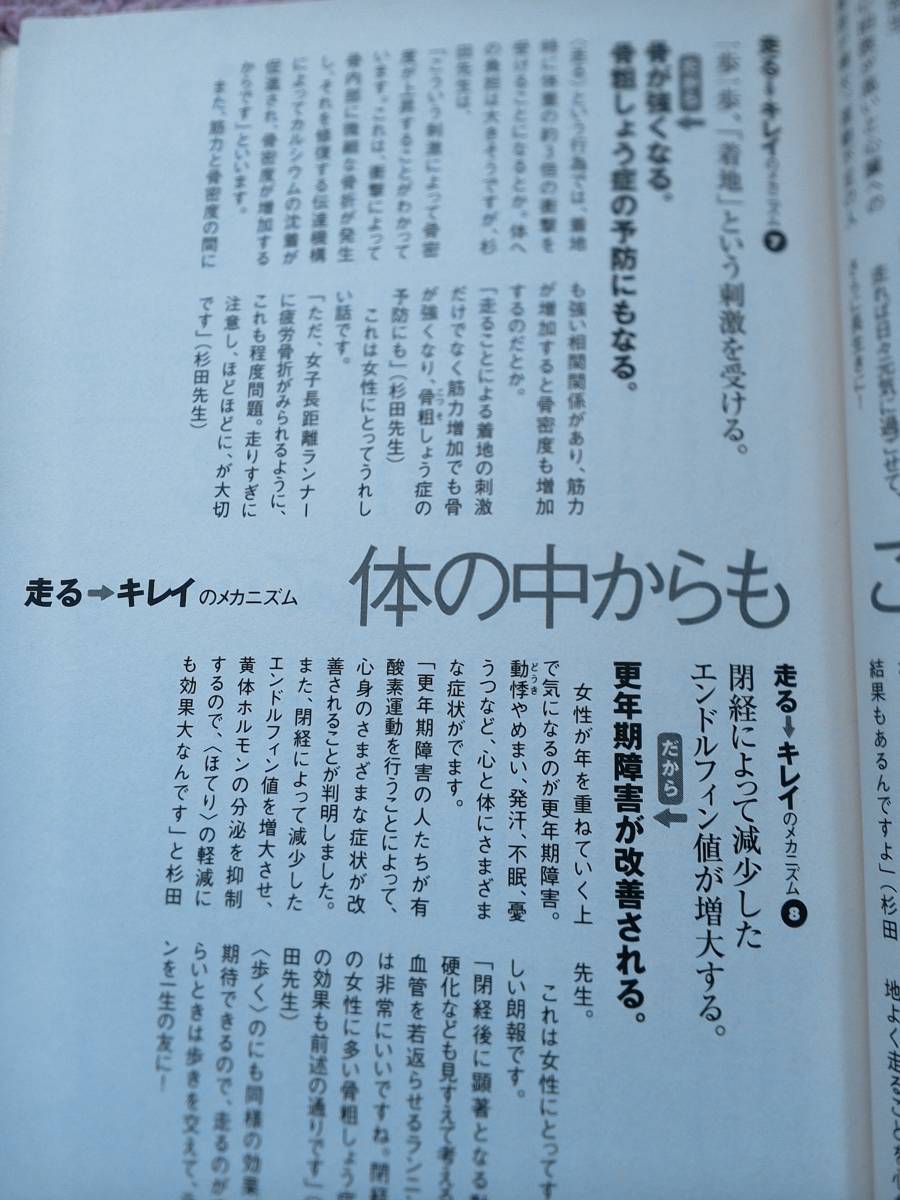 走る→キレイのメカニズム❼
一歩一歩、「着地」という刺激を受ける。
だから
骨が強くなる。
骨粗しょう症の予防にもなる。
〈走る〉という行為では、着地
時に体重の約3倍の衝撃を
受けることになるとか。体へ
の負担は大きそうですが、杉
田先生は、
「こういう刺激によって骨密
度が上昇することがわかって
います。これは、衝撃によって
骨内部に微細な骨折が発生
し、それを修復する伝達機構
によってカルシウムの沈着が
促進され、骨密度が増加する
からです」といいます。
また、筋力と骨密度の間に
も強い相関関係があり、筋力
が増加すると骨密度も増加
するのだとか。
「走ることによる着地の刺激
だけでなく筋力増加でも骨
が強くなり、骨粗しょう症の
こつそ
予防にも」(杉田先生)
これは女性にとってうれし
い話です。
「ただ、女子長距離ランナー
に疲労骨折がみられるように、
これも程度問題。走りすぎに
注意し、ほどほどに、が大切
です」(杉田先生)
体の中からも
走る→キレイのメカニズム
走る→キレイのメカニズム❽
閉経によって減少した
エンドルフィン値が増大する。
だから
更年期障害が改善される。
女性が年を重ねていく上
で気になるのが更年期障害。
動悸やめまい、発汗、不眠、憂
どうき
うつなど、心と体にさまざま
な症状がでます。
「更年期障害の人たちが有
酸素運動を行うことによって、
心身のさまざまな症状が改
善されることが判明しました。
また、閉経によって減少した
エンドルフィン値を増大させ、
黄体ホルモンの分泌を抑制
するので、〈ほてり〉の軽減に
も効果大なんです」と杉田
先生。
これは女性にとってす
しい朗報です。
「閉経後に顕著となる動
硬化なども見すえて考える
血管を若返らせるランニ
は非常にいいですね。閉経
の女性に多い骨粗しょう症
の効果も前述の通りです」(
田先生)
〈歩く〉のにも同様の効果
期待できるので、走るのが
らいときは歩きを交えて、
ンを一生の友に!
走れば日々元気に過ごせて、
結果もあるんですよ」(杉田
地よく走ることを心